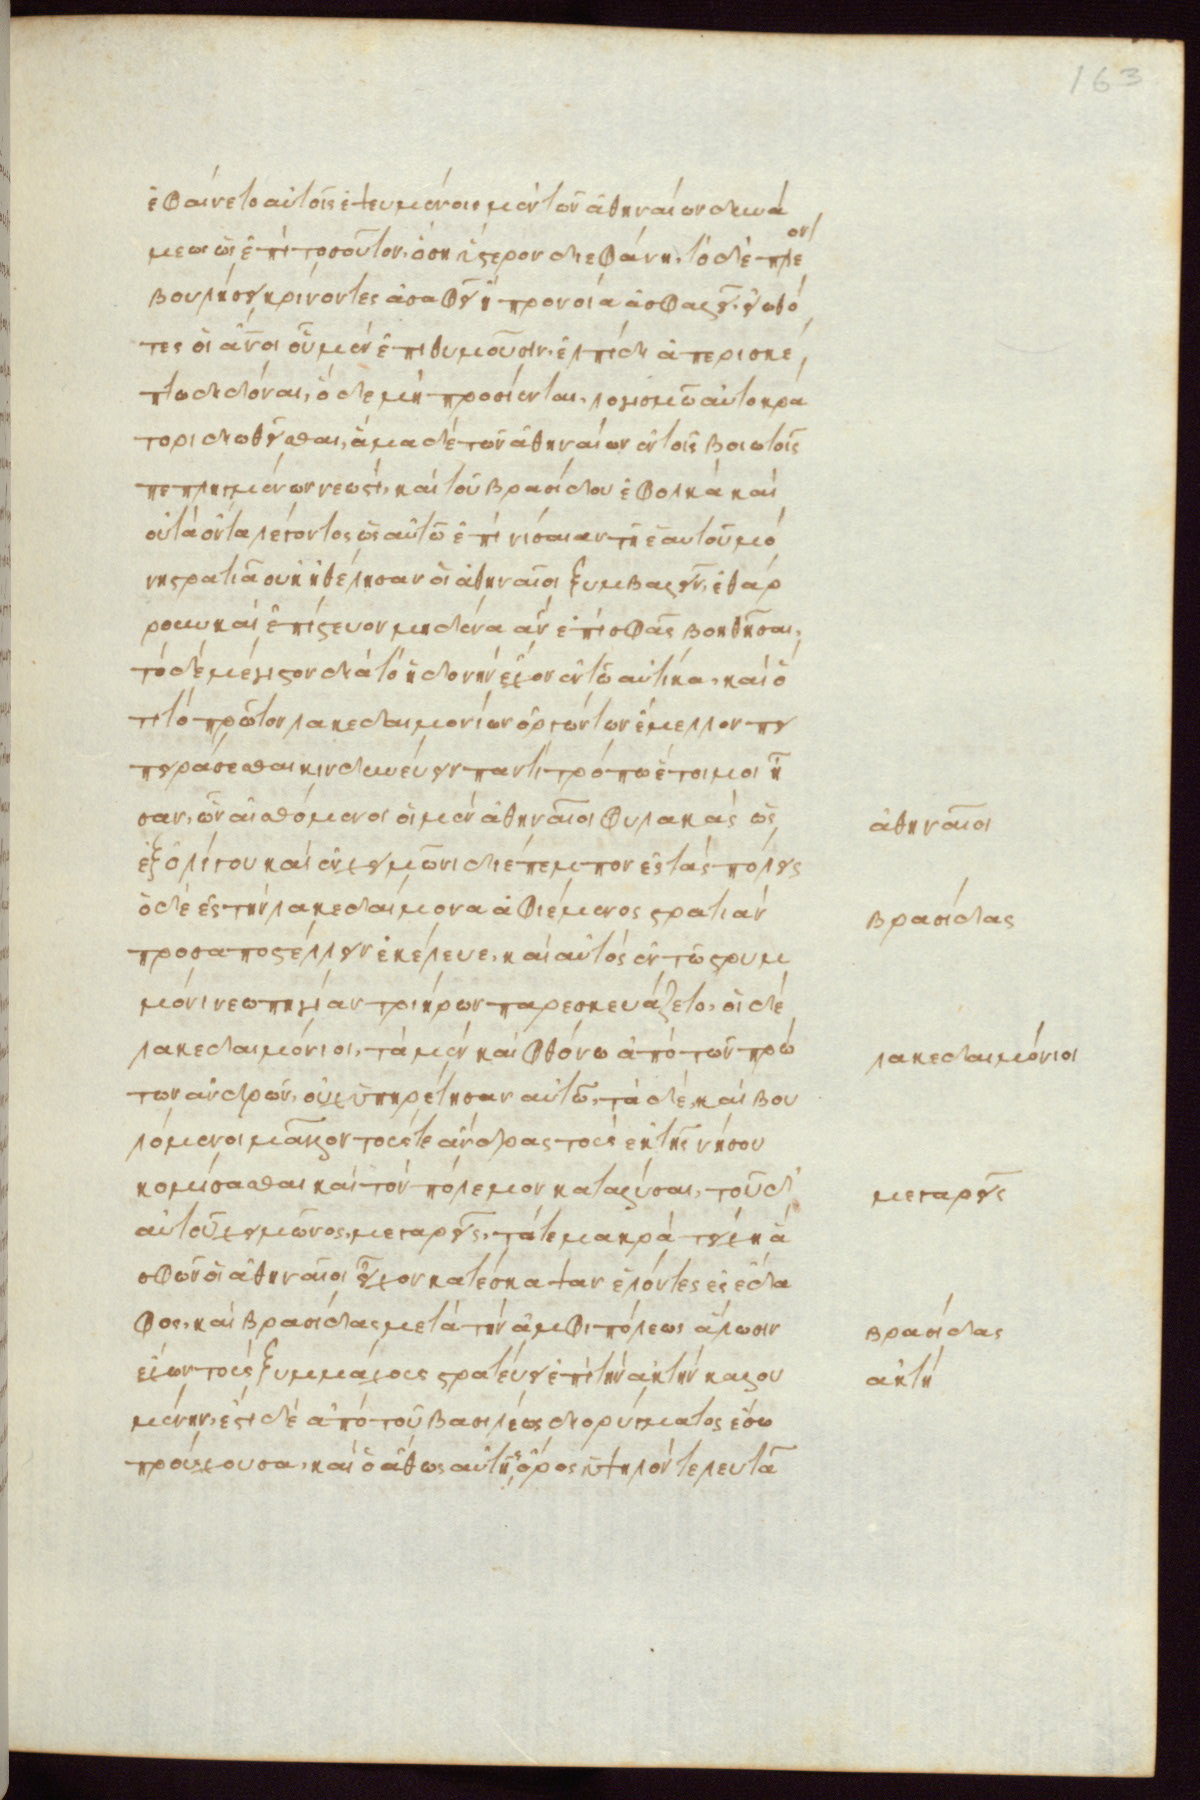 163
ἐφαίνετο αὐτοῖς ἐψευμένοις μὲν τῶν ἀθηναίων δυνά
μεως ὡς ἐπὶ τοσοῦτον, ὅση ὕστερον διεφάνη, τὸ δὲ πλε
ον
βουλήσει κρίνοντες ἀσαφεῖ ἢ προνοία ἀσφαλεῖ, εἰωθό
τες οἱ ἄνοι οὗ μὲν ἐπιθυμοῦσιν, ἐλπίδι ἀπερισκέ
πτω διδόναι, ὃ δὲ μὴ προσίενται, λογισμῶ αὐτοκρά
τορι διωθεῖσθαι, ἅμα δὲ τῶν ἀθηναίων ἐν τοῖς βοιωτοῖς
πεπληγμένων νεωστί, καὶ τοῦ βρασίδου ἐφολκὰ καὶ
οὐ τὰ ὄντα λέγοντος ὡς αὐτῶ ἐπὶ νίσαιαν τῆ ἑαυτοῦ μό
νη στρατιᾶ οὐκ ἠθέλησαν οἱ ἀθηναῖοι ξυμβαλεῖν, ἐθάρ
ρουν καὶ ἐπίστευον μηδένα ἂν ἐπὶ σφᾶς βοηθῆσαι,
τὸ δὲ μέγιστον διὰ τὸ ἡδονὴν ἔχον ἐν τῶ αὐτίκα, καὶ ὅ
τι τὸ πρῶτον λακεδαιμονίων ὀργώντων ἔμελλον πει
πειράσεσθαι κινδυνεύειν παντὶ τρόπω ἕτοιμοι ἦ
σαν, ὧν αἰσθόμενοι οἱ μὲν ἀθηναῖοι φυλακὰς ὡς
ἀθηναῖοι
ἐξ ὀλίγου καὶ ἐν χειμῶνι διέπεμπον ἐς τὰς πόλεις
ὁ δὲ ἐς τὴν λακεδαίμονα ἀφιέμενος στρατιάν
βρασίδας
προσαποστέλλειν ἐκέλευε, καὶ αὐτὸς ἐν τῶ στρυμ
μόνι νεωπηγίαν τριήρων παρεσκευάζετο, οἱ δὲ
λακεδαιμόνιοι, τὰ μὲν καὶ φθόνω ἀπὸ τῶν πρώ
λακεδαιμόνιοι
των ἀνδρῶν, οὐχ ὑπηρέτησαν αὐτῶ, τὰ δὲ, καὶ βου
λόμενοι μᾶλλον τούς τε ἄνδρας τοὺς ἐκ τῆς νήσου
κομίσασθαι καὶ τὸν πόλεμον καταλύσαι, τοῦ δ'
μεγαρεῖς
αὐτοῦ χειμῶνος, μεγαρεῖς, τά τε μακρὰ τείχη ἃ
σφῶν οἱ ἀθηναῖοι εἶχον κατέσκαψαν ἑλόντες ἐς ἔδα
φος, καὶ βρασίδας μετὰ τὴν ἀμφιπόλεως ἅλωσιν
βρασίδας
ἔχων τοὺς ξυμμάχους στρατεύει ἐπὶ τὴν ἀκτὴν καλου
ἀκτή
μένην, ἔστι δὲ ἀπὸ τοῦ βασιλέως διορύγματος ἔσω
προύχουσα, καὶ ὁ ἄθως αὐτῆς ὄρος ὑψηλὸν τελευτᾶ